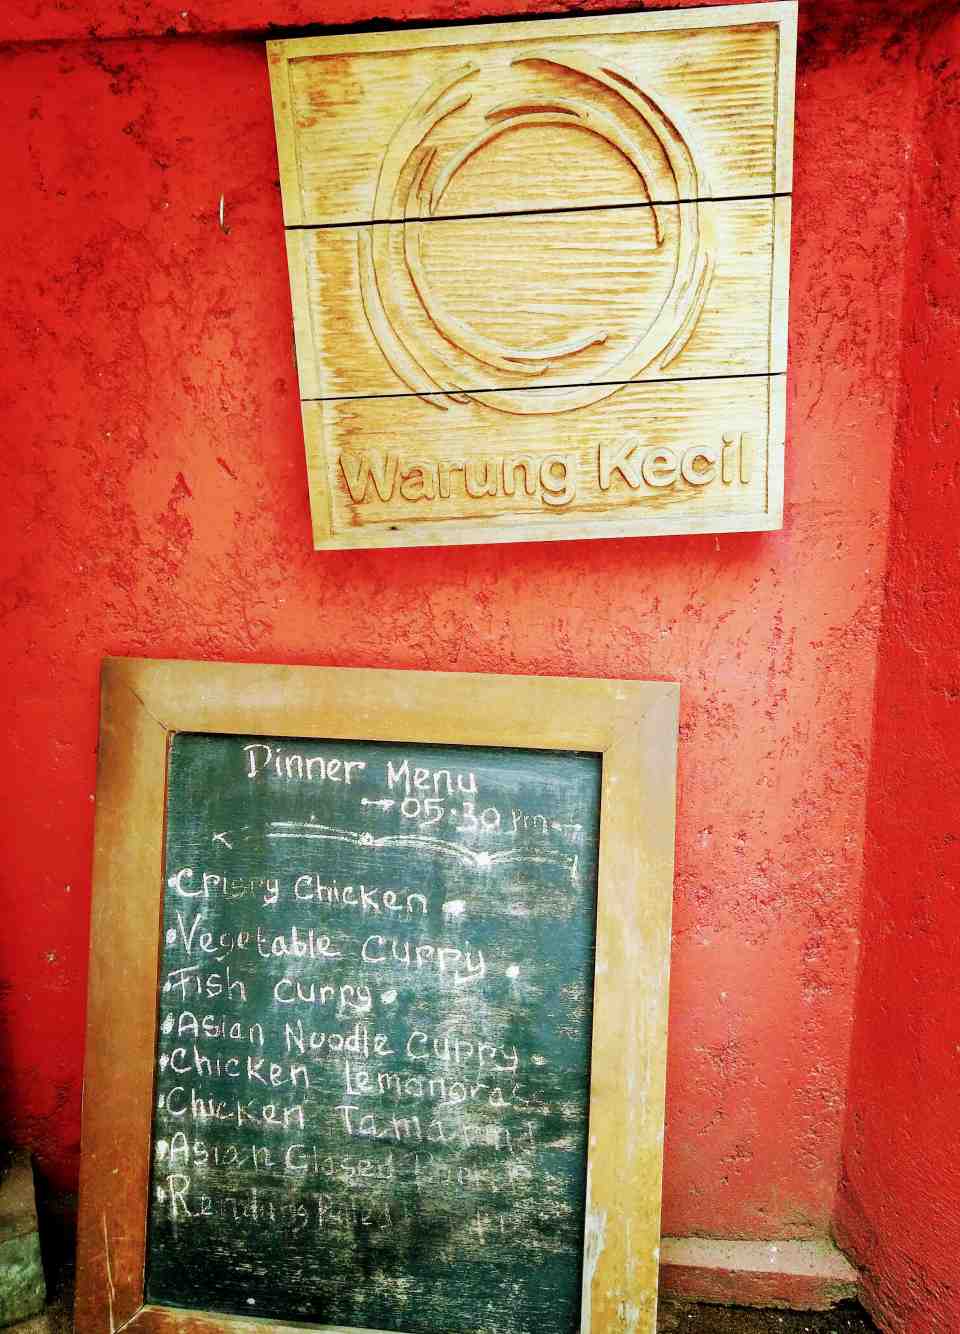 Warung Kecil
Dinner Menu
→05.30 pm
Crispy Chicken
Vegetable Curry
Fish Curry
Asian Noodle Curry
Chicken Lemongras
Chicken Tamarind
Asian Glased
Rendang